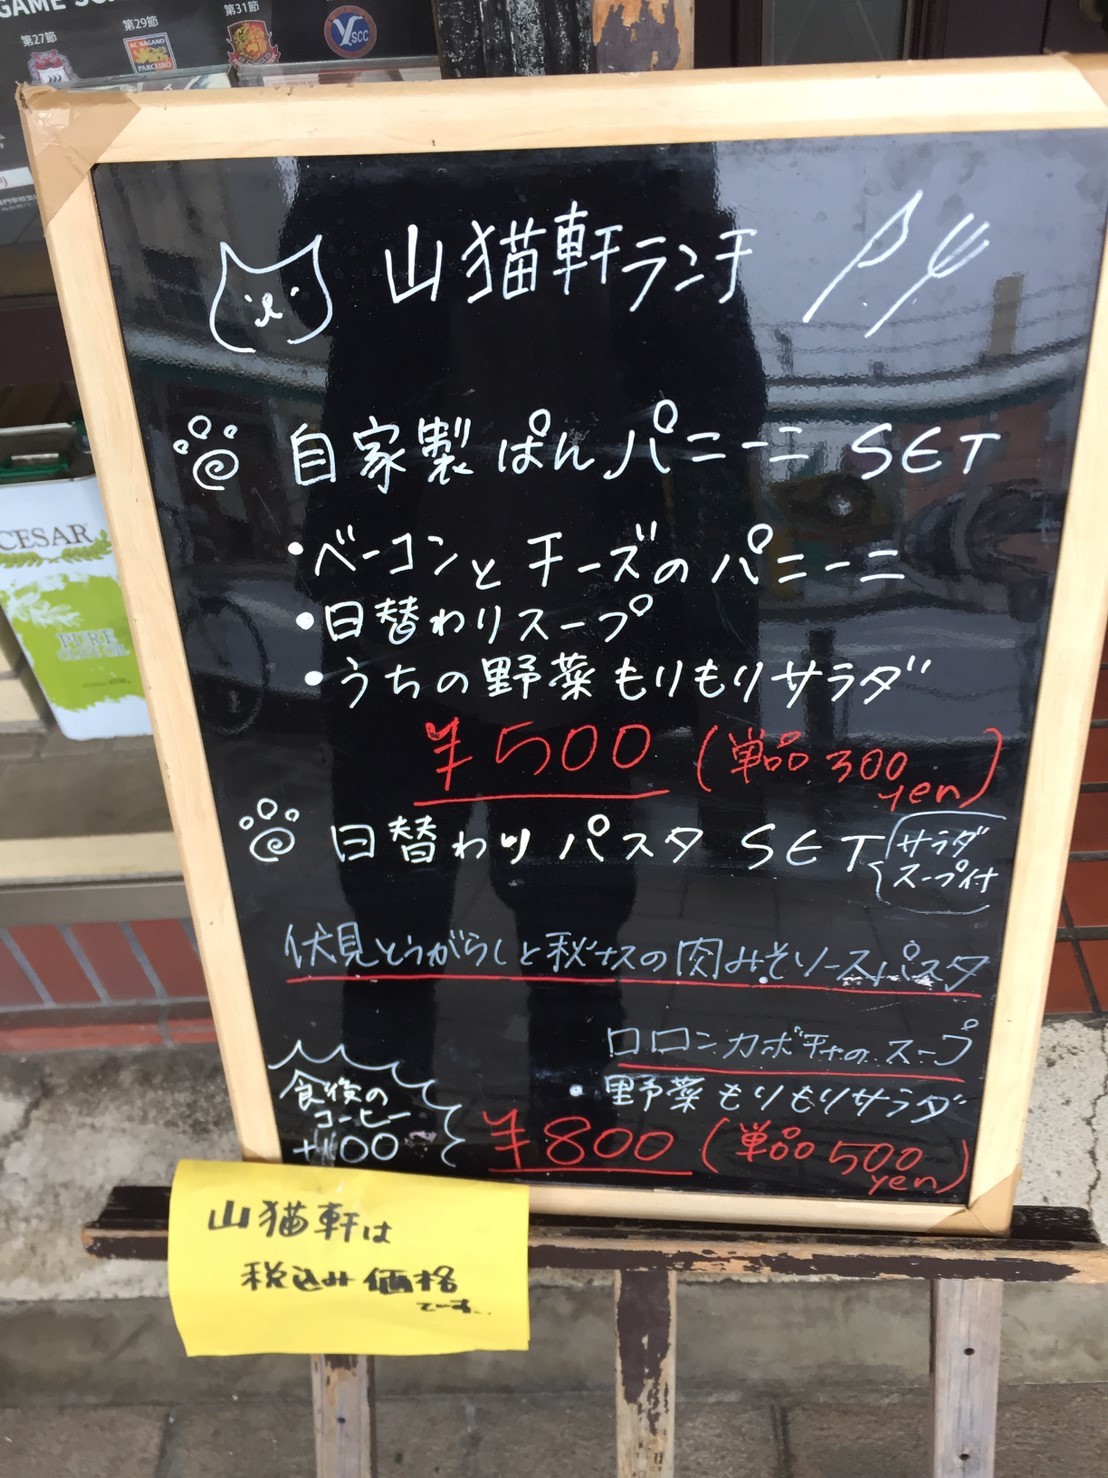 第27節
第29節
第31節
AC NAGANO
PARCEIRO
YSCC
山猫軒ランチ
自家製ぱんパニーニ SET
・ベーコンとチーズのパニーニ
・日替わりスープ
・うちの野菜もりもりサラダ
¥500 (単品300yen)
日替わりパスタ SET
サラダ
スープ付
伏見とうがらしと秋ナスの肉みそソースパスタ
ロロンカボチャのスープ
・野菜もりもりサラダ
食後の
コーヒー
+100
¥800 (単品500yen)
山猫軒は
税込み価格
です。
CESAR
PURE
OLIVE OIL